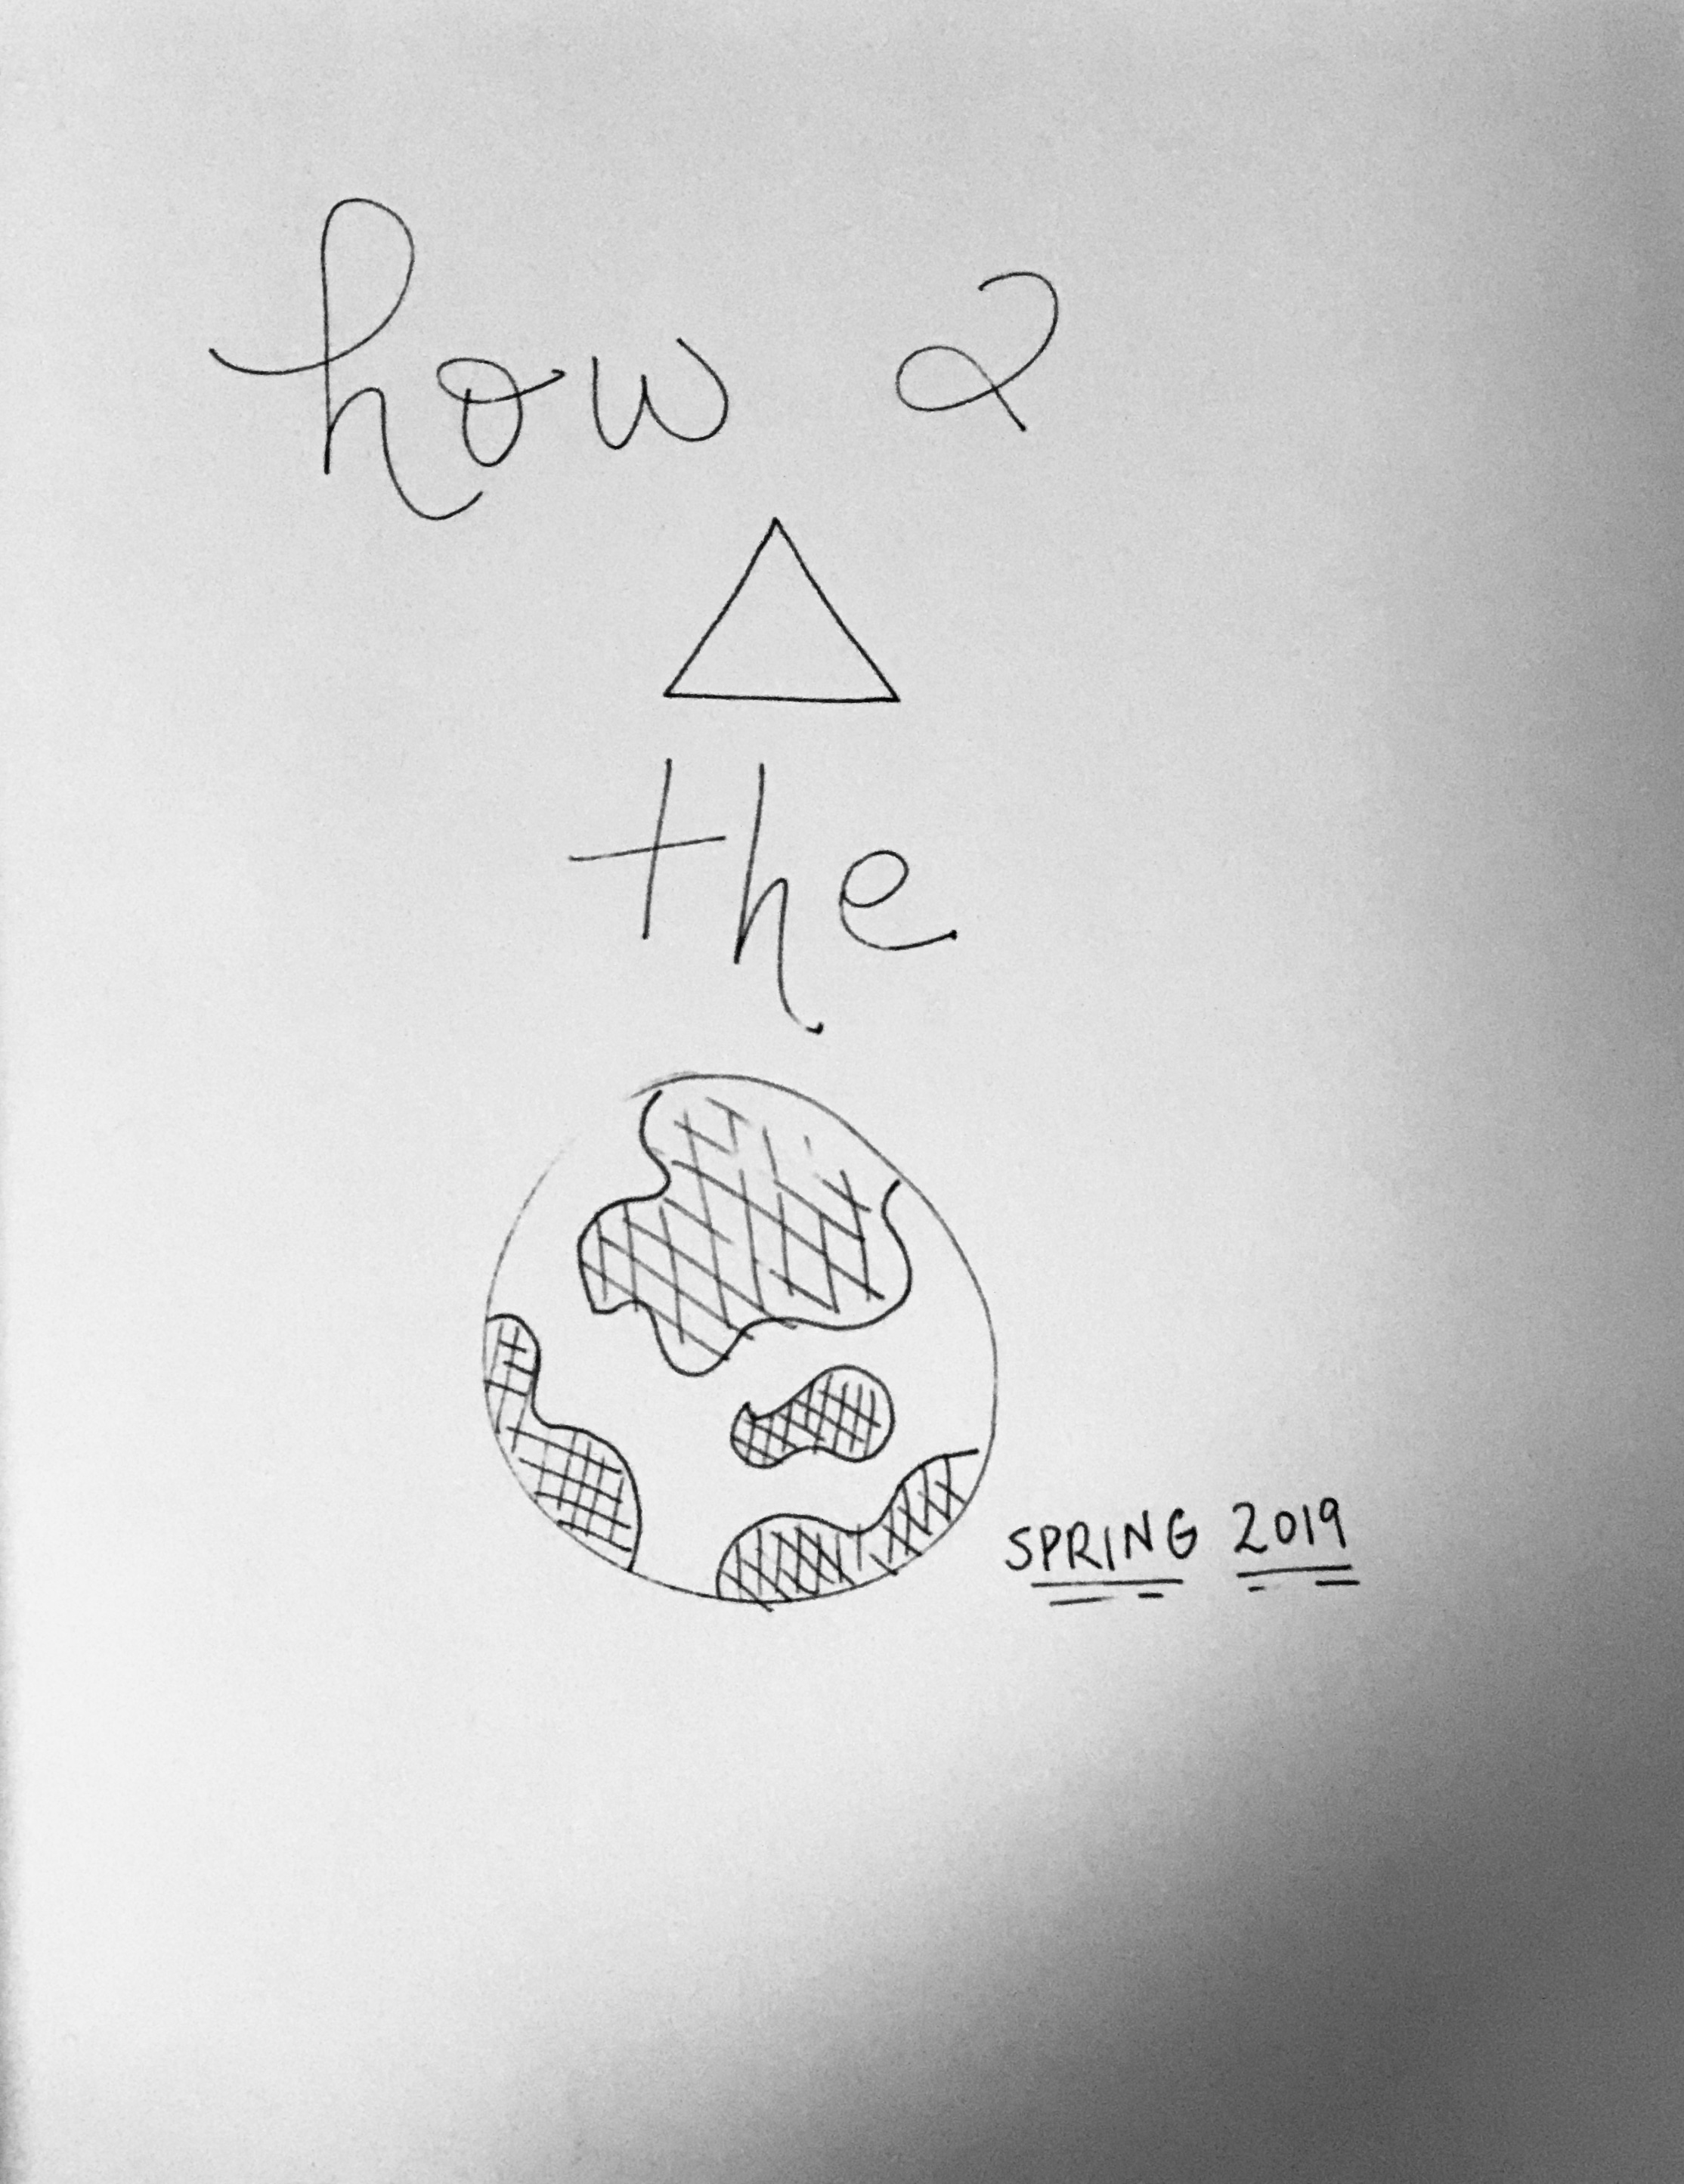 how 2
the
SPRING 2019